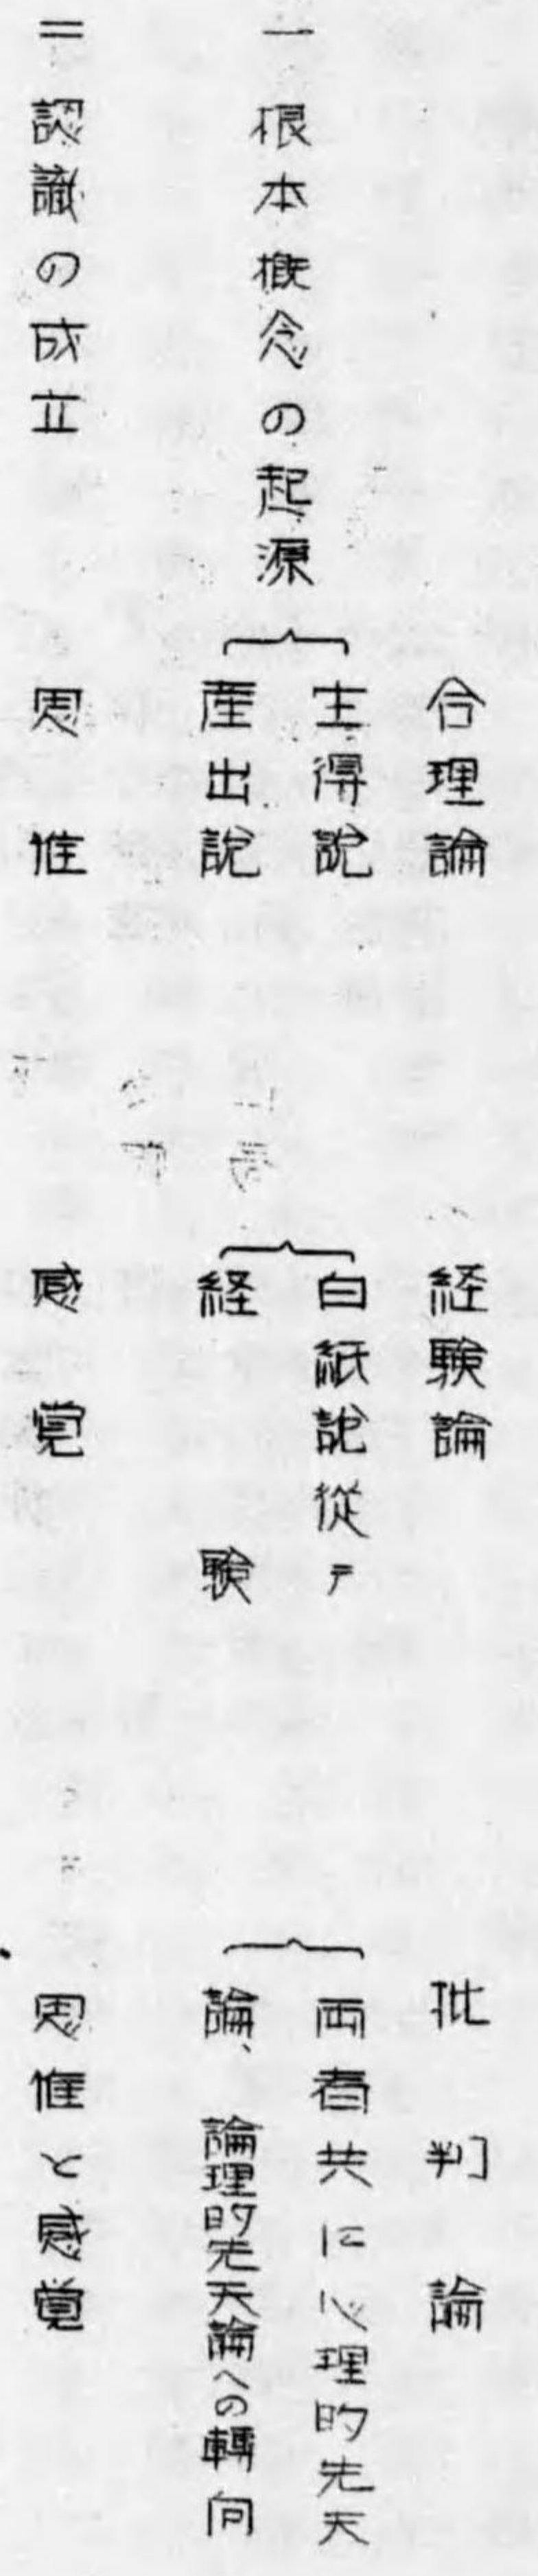 合理論　経験論　批判論
一 根本概念の起源
生得説　白紙説従テ　両者共に心理的先天
産出説　経験　論、論理的先天論への轉向
二 認識の成立　思惟　感覚　思惟と感覚